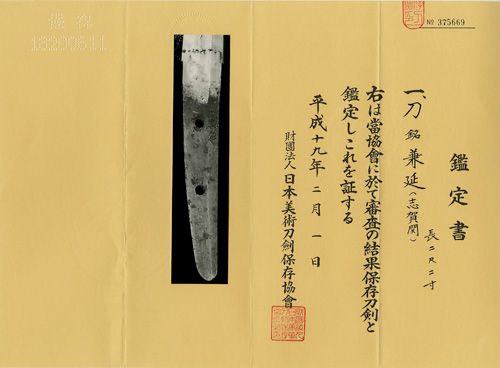 No 375669
鑑定書
一、刀 銘 兼延(志賀関)
長二尺二寸
右は當協會に於て審査の結果保存刀剣と
鑑定しこれを証する
平成十九年二月一日
財團法人 日本美術刀劍保存協會
18200611